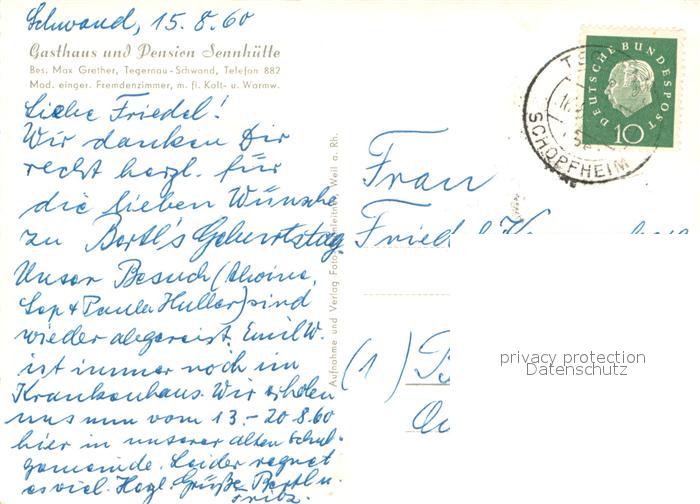 Schwand, 15.8.60
Gasthaus und Pension Sennhütte
Bes. Max Grether, Tegernau-Schwand, Telefon 882
Mod. einger. Fremdenzimmer, m. fl. Kalt- u. Warmw.
Liebe Friedel!
Wir danken Dir
recht herzl. für
die lieben Wünsche
zu Bertl's Geburtstag.
Unser Besuch (Alwine,
Sep & Paula Huller) sind
wieder abgereist. Emil W.
ist immer noch im
Krankenhaus. Wir erholen
uns nun vom 13.-20.8.60
hier in unserer alten Schul-
gemeinde. Leider regnet
es viel. Hzgl. Grüße Bertl u.
Fritz.
Aufnahme und Verlag Weil a. Rh.
DEUTSCHE BUNDESPOST
10
SCHOPFHEIM
Frau
Friedel
(1)
privacy protection
Datenschutz